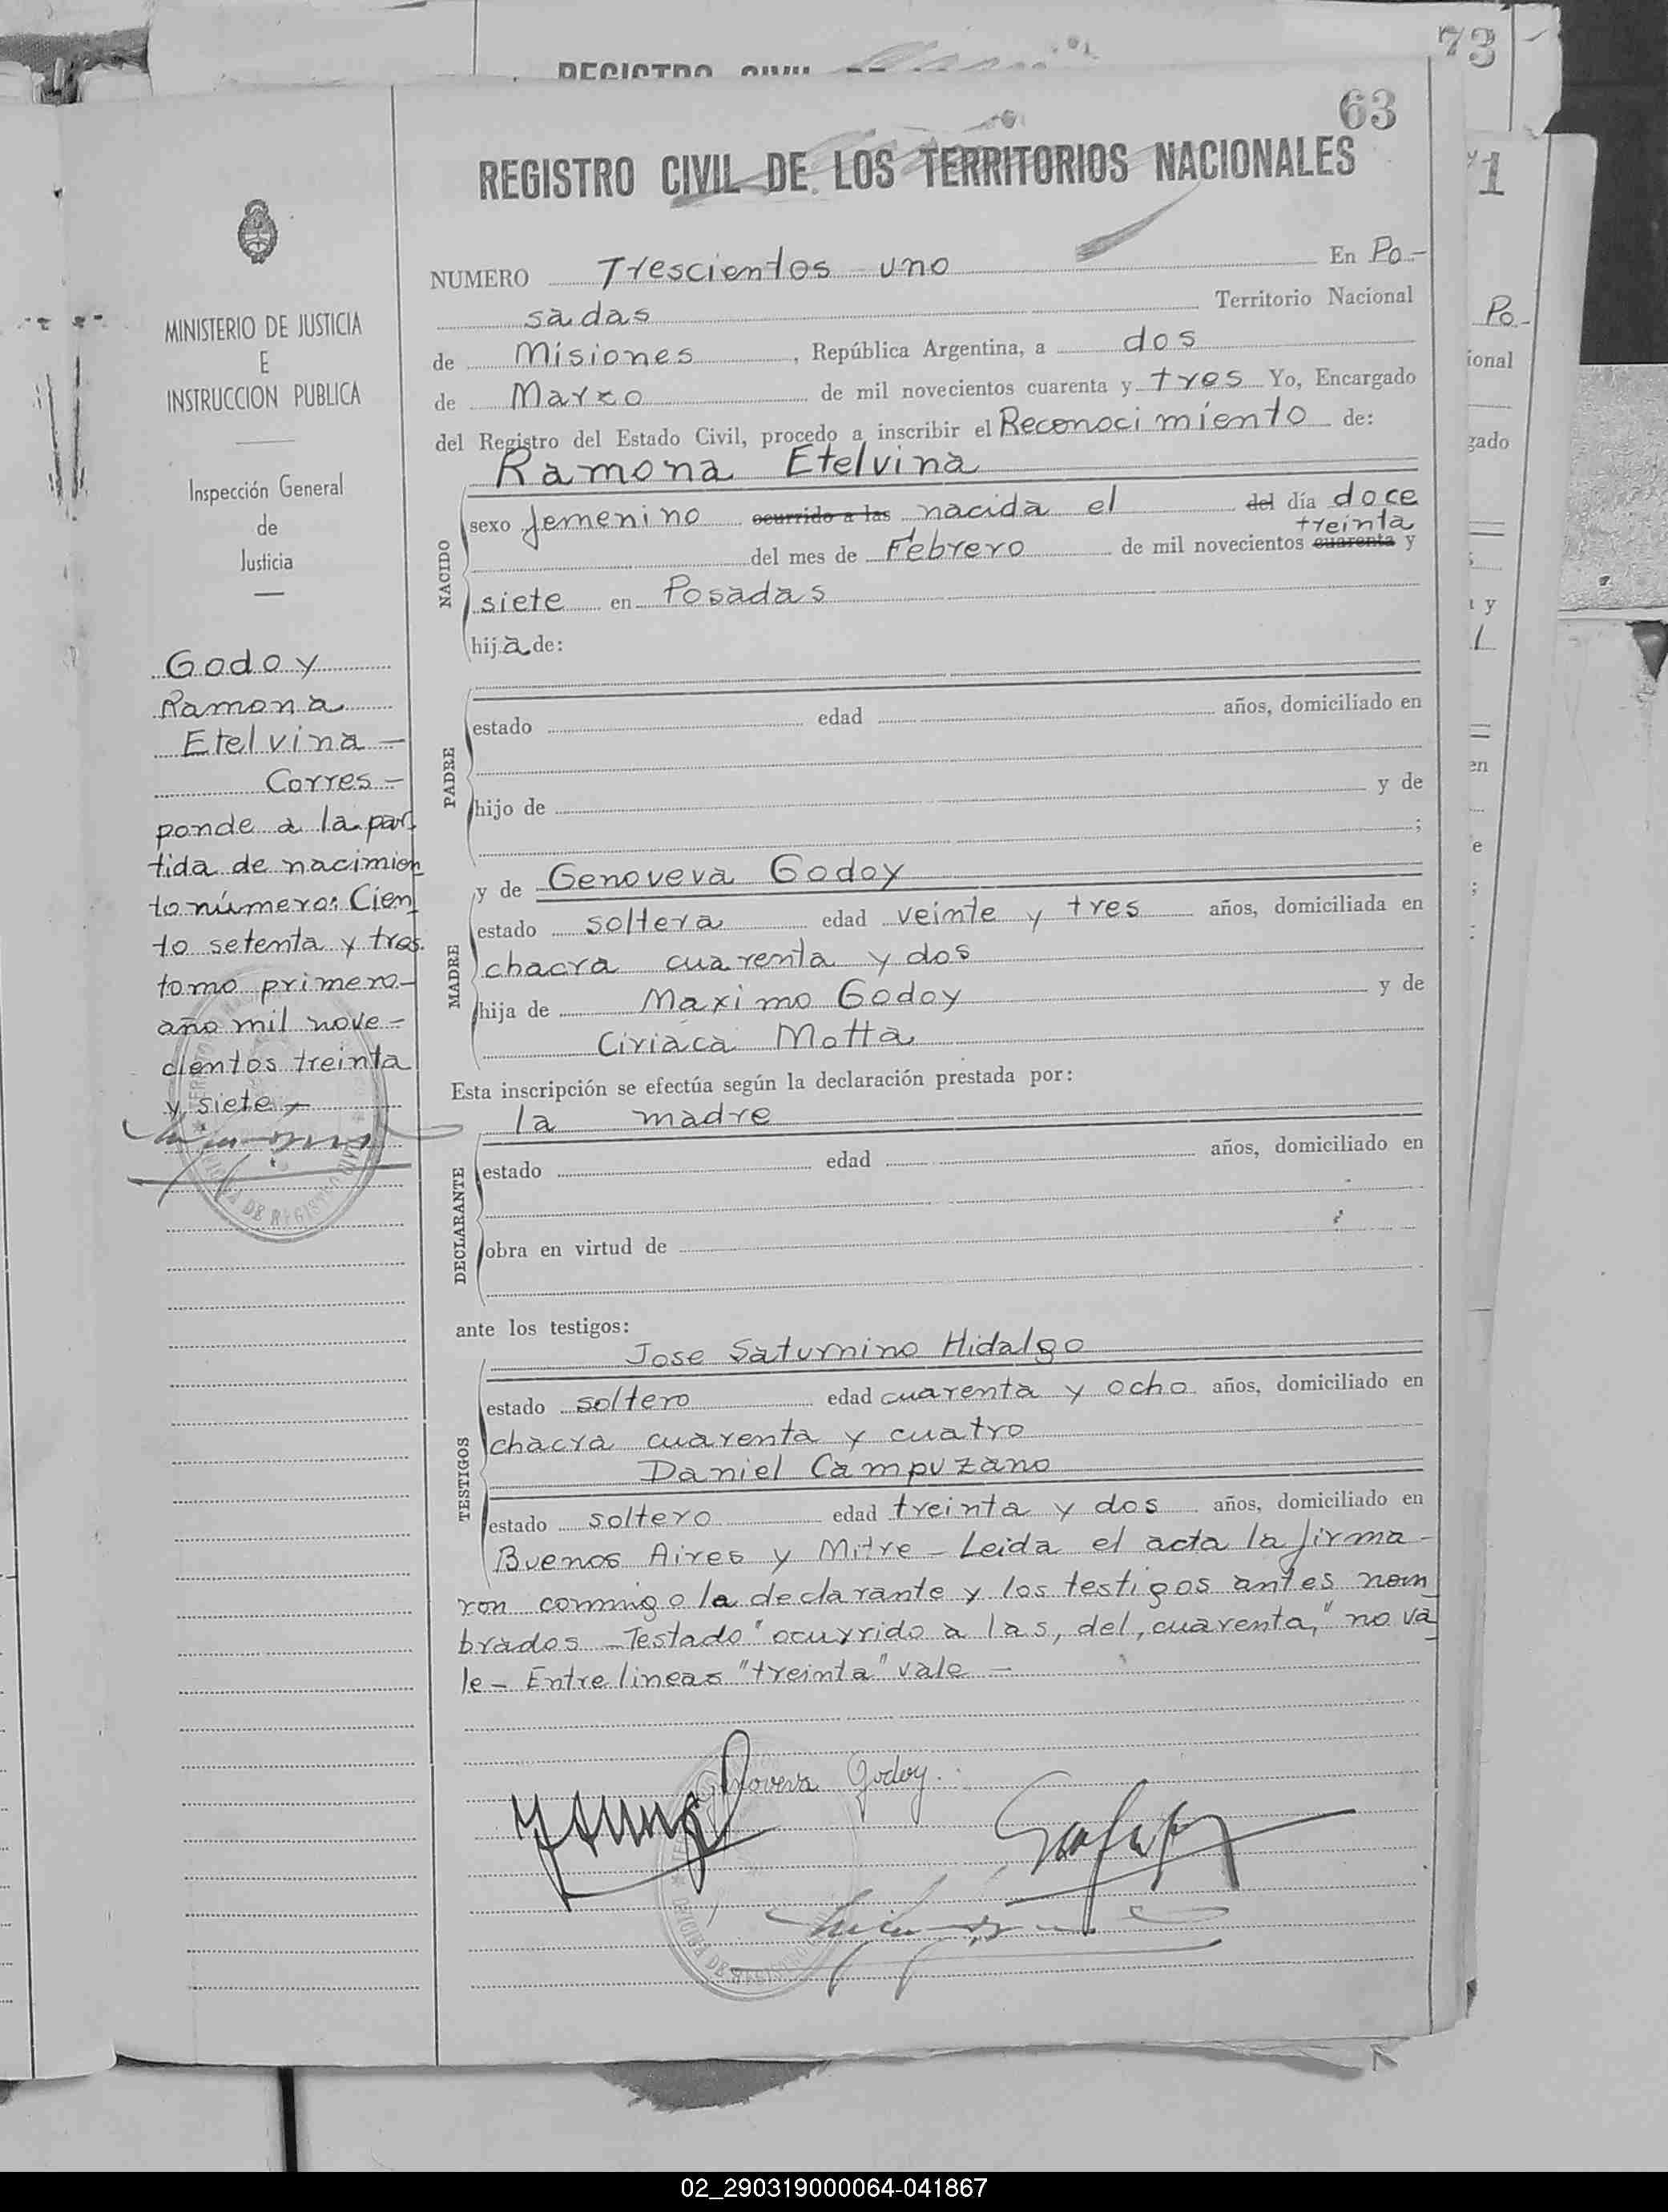 73
REGISTRO CIVIL DE
63
REGISTRO CIVIL DE LOS TERRITORIOS NACIONALES
71
MINISTERIO DE JUSTICIA
E
INSTRUCCION PUBLICA
Inspección General
de
Justicia
Godoy
Ramona
Etelvina —
Corres-
ponde a la par-
tida de nacimien
to número: Cien
to setenta y tres
tomo primero-
año mil nove-
cientos treinta
y siete -
NUMERO Trescientos uno En Po-
sadas Territorio Nacional
de Misiones, República Argentina, a dos
de Marzo de mil novecientos cuarenta y tres Yo, Encargado
del Registro del Estado Civil, procedo a inscribir el Reconocimiento de:
Ramona Etelvina
NACIDO
sexo femenino ocurrido a las nacida el del día doce
treinta
del mes de Febrero de mil novecientos cuarenta y
siete en Posadas
hija de:
PADRE
estado edad años, domiciliado en
hijo de y de
;
y de Genoveva Godoy
MADRE
estado soltera edad veinte y tres años, domiciliada en
chacra cuarenta y dos
hija de Maximo Godoy y de
Ciriaca Motta
Esta inscripción se efectúa según la declaración prestada por:
la madre
DECLARANTE
estado edad años, domiciliado en
obra en virtud de
ante los testigos:
Jose Saturnino Hidalgo
TESTIGOS
estado soltero edad cuarenta y ocho años, domiciliado en
chacra cuarenta y cuatro
Daniel Campuzano
estado soltero edad treinta y dos años, domiciliado en
Buenos Aires y Mitre - Leida el acta la firma-
ron conmigo la declarante y los testigos antes nom
brados - Testado "ocurrido a las, del, cuarenta," no va
le - Entre lineas "treinta" vale -
Genoveva Godoy.
Po-
ional
gado
y
en
e
;
02_290319000064-041867